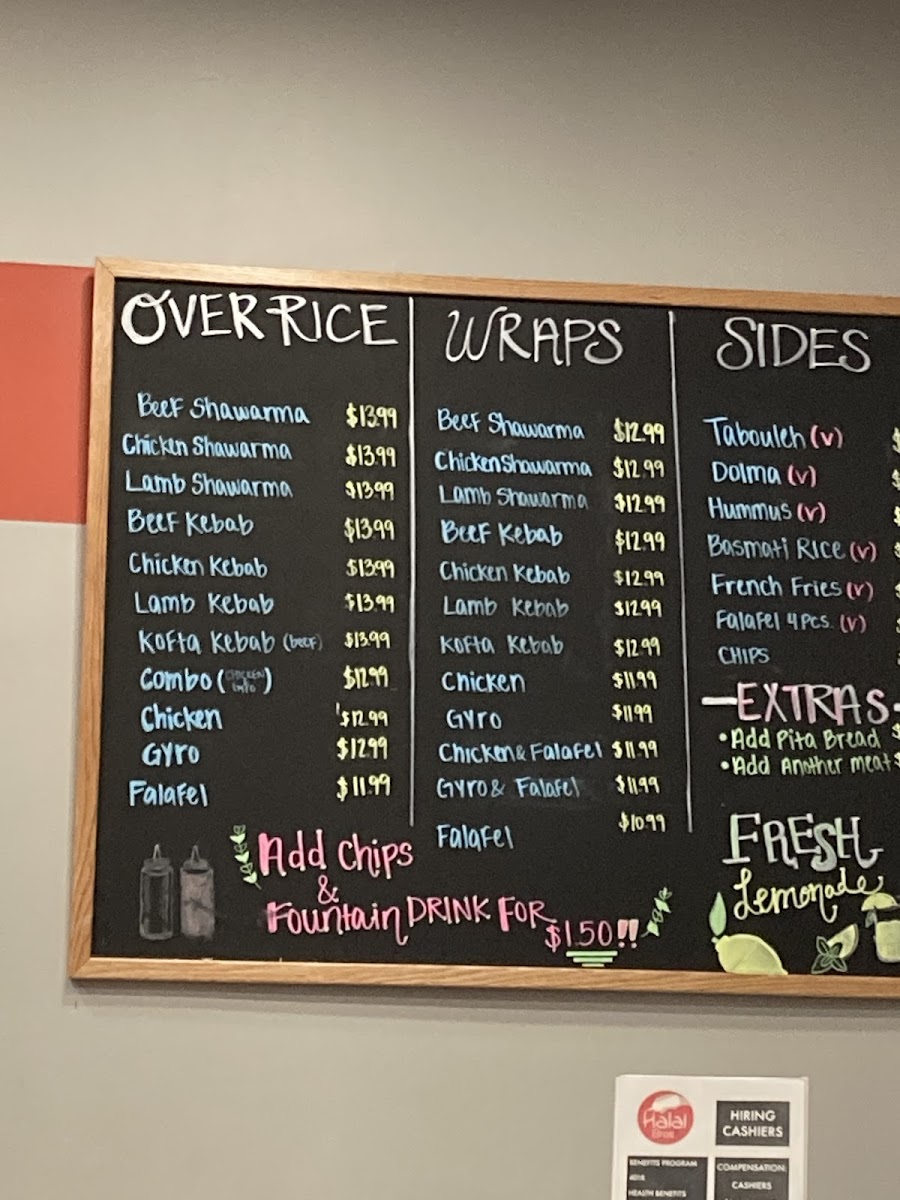 OVER RICE
Beef Shawarma $13.99
Chicken Shawarma $13.99
Lamb Shawarma $13.99
Beef Kebab $13.99
Chicken Kebab $13.99
Lamb Kebab $13.99
Kofta Kebab (beef) $13.99
Combo (CHICKEN GYRO) $12.99
Chicken $12.99
Gyro $12.99
Falafel $11.99
WRAPS
Beef Shawarma $12.99
Chicken Shawarma $12.99
Lamb Shawarma $12.99
Beef Kebab $12.99
Chicken Kebab $12.99
Lamb Kebab $12.99
Kofta Kebab $12.99
Chicken $11.99
Gyro $11.99
Chicken & Falafel $11.99
Gyro & Falafel $11.99
Falafel $10.99
Add Chips
&
Fountain DRINK FOR
$1.50!!
SIDES
Tabouleh (v)
Dolma (v)
Hummus (v)
Basmati Rice (v)
French Fries (v)
Falafel 4 Pcs. (v)
CHIPS
EXTRAS
• Add Pita Bread
• Add Another meat
FRESH
Lemonade
Halal
Bros
HIRING
CASHIERS
BENEFITS PROGRAM
401K
HEALTH BENEFITS
COMPENSATION:
CASHIERS